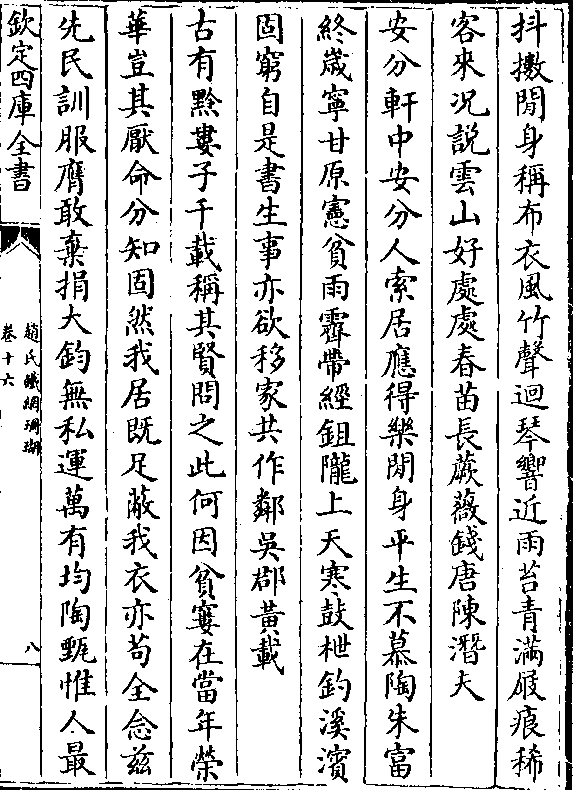 抖擻閒身稱布衣風竹聲迴琴響近雨苔青滿屐痕稀
客來况説雲山好處處春苗長蕨薇錢唐陳潛夫
安分軒中安分人索居應得樂閒身平生不慕陶朱富
終嵗寧甘原憲貧雨霽帶經鉏隴上天寒鼓枻釣溪濱
固窮自是書生事亦欲移家共作鄰吳郡黃載
古有黔婁子千載稱其賢問之此何因貧窶在當年榮
華豈其厭命分知固然我居既足蔽我衣亦苟全念兹
先民訓服膺敢棄捐大鈞無私運萬有均陶甄惟人最
欽定四庫全書
趙氏鐵網珊瑚
卷十六
八